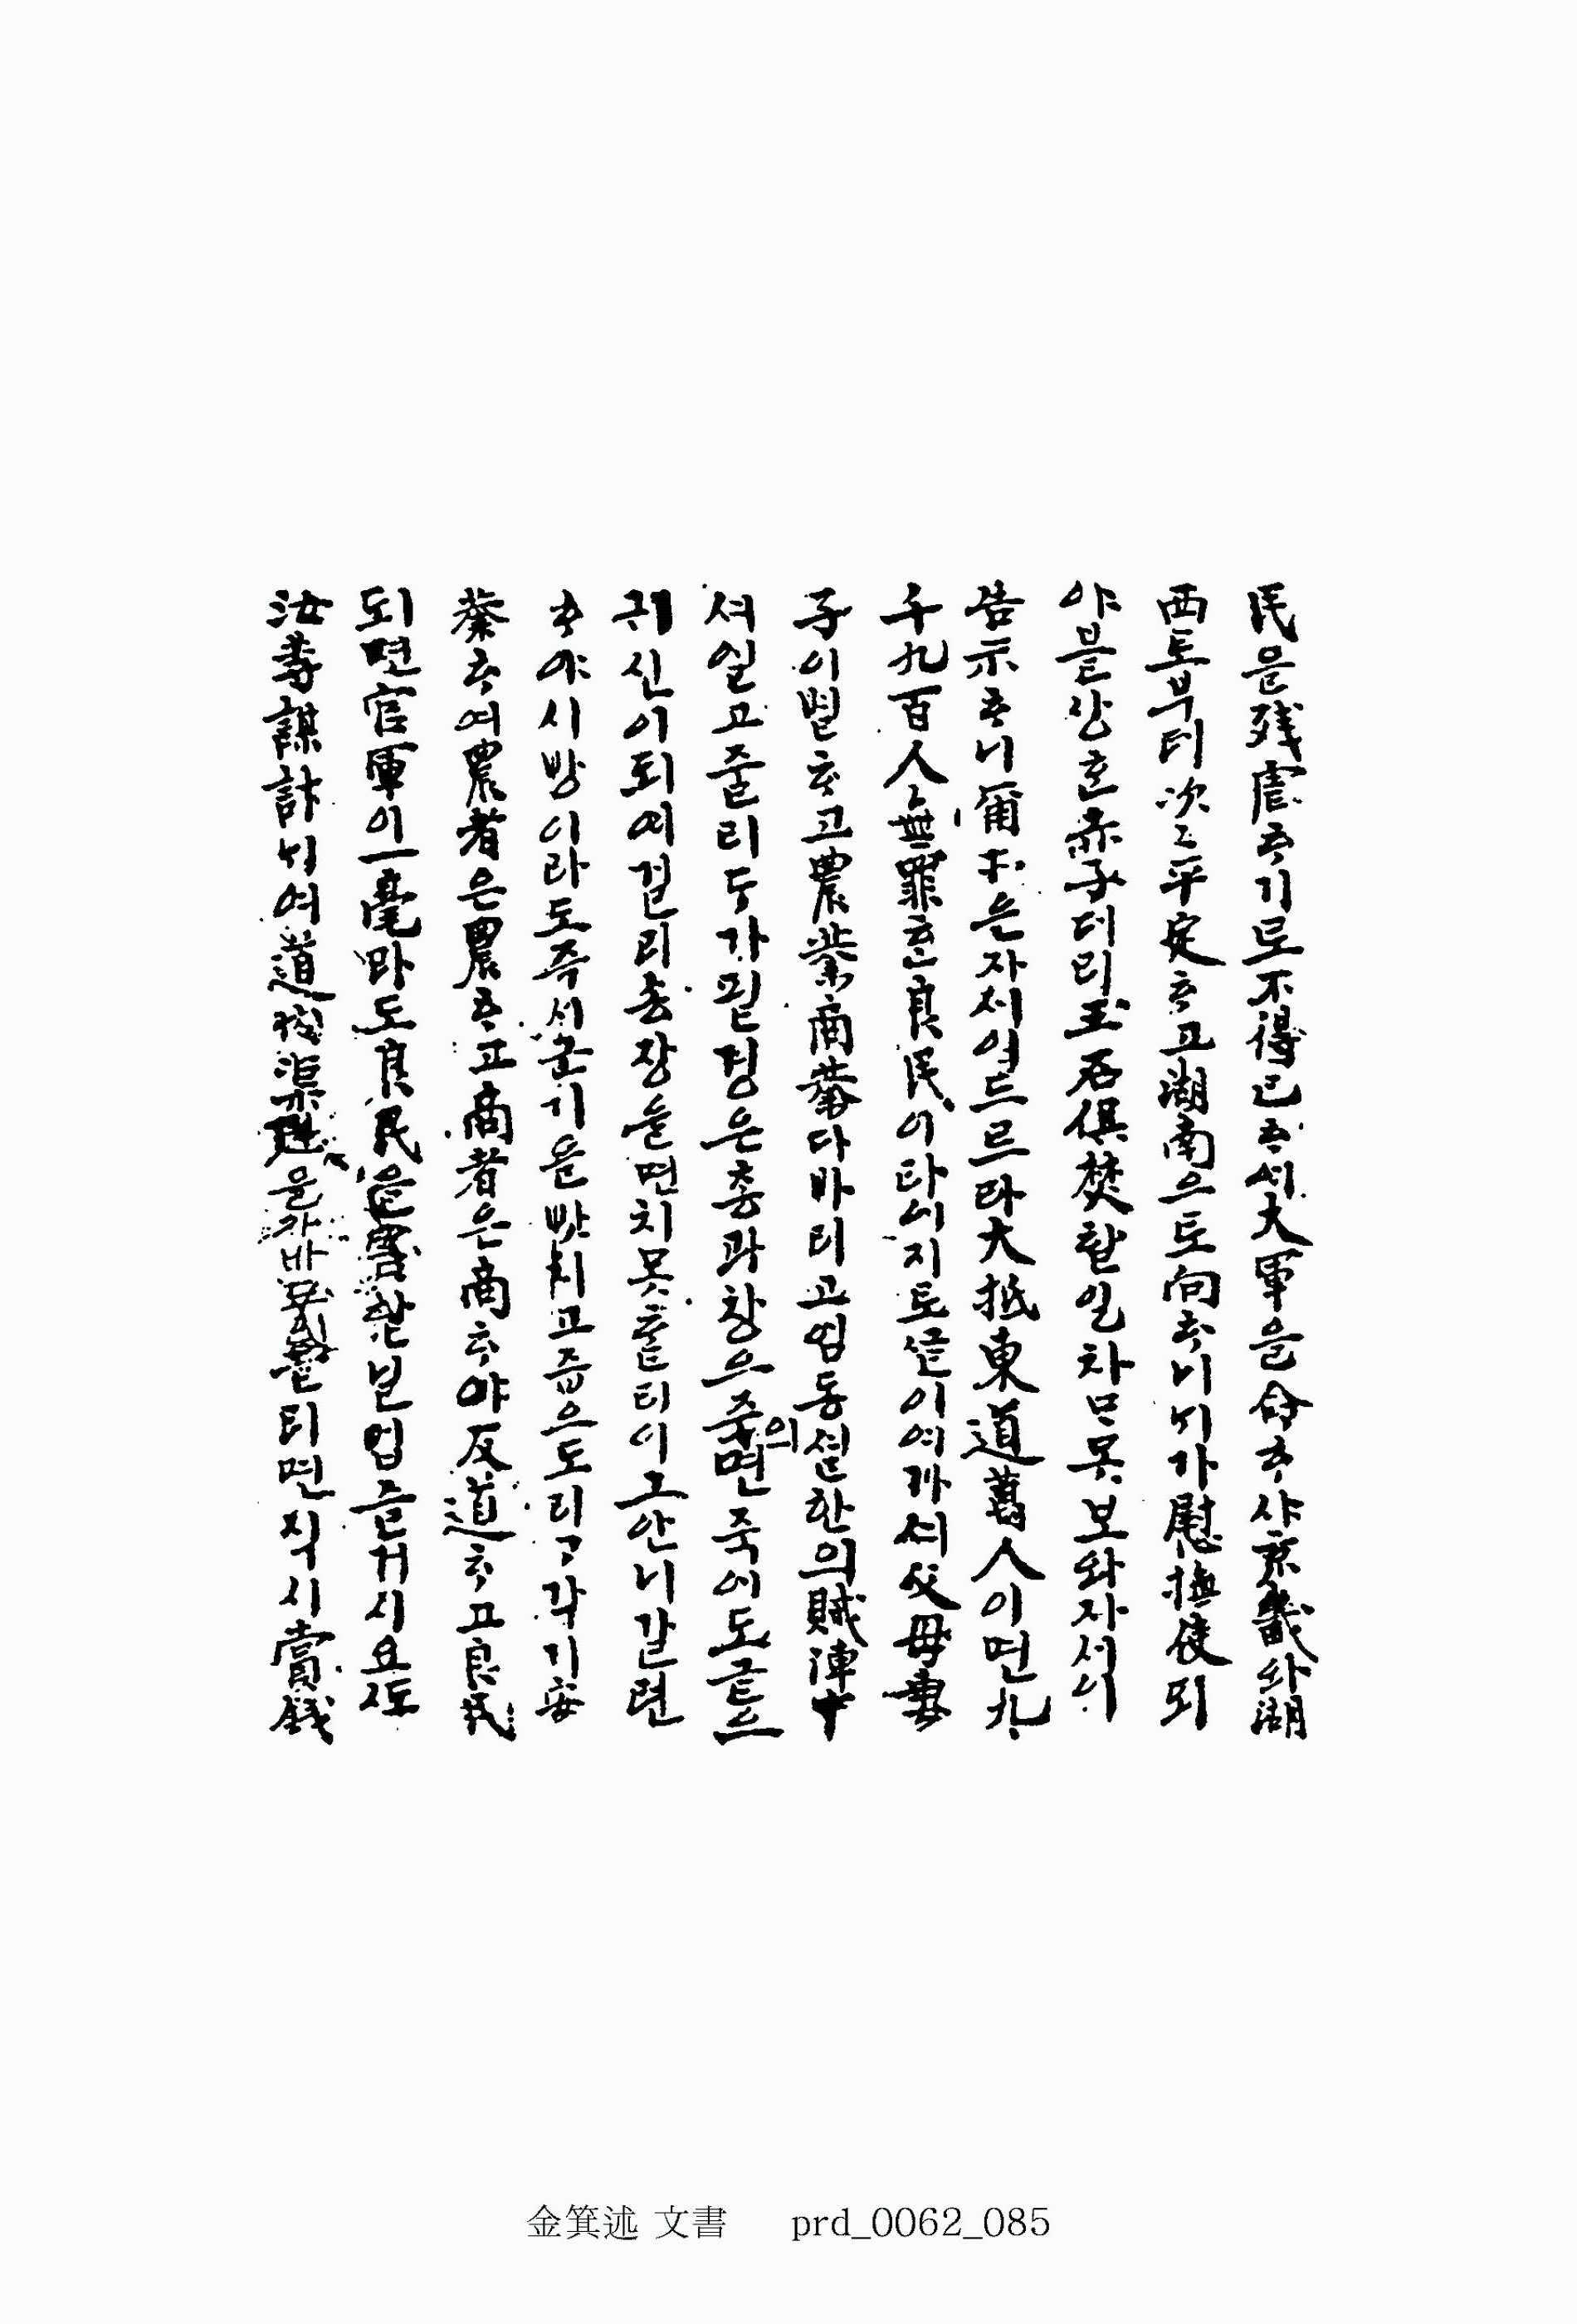 民을殘虐ᄒᆞ기로不得已ᄒᆞ셔大軍을命ᄒᆞ사京畿와湖
西로부터次〻平定ᄒᆞ고湖南으로向ᄒᆞ니ᄂᆡ가慰撫使되
야블상ᄒᆞᆫ赤子더리玉石俱焚할일차마못보와자셔이
告示ᄒᆞ니爾等은자셔이드르라大抵東道萬人이면九
千九百人無罪ᄒᆞᆫ良民이라어지로ᄭᅳᆯ이여가셔父母妻
子이별ᄒᆞ고農業商業다바리고엄동셜한의賊陣中
셔얼고줄리두가필경은춍과창으의죽면죽어도글으
귀신이되여걸리송장을면치못ᄒᆞᆯ터이그안니갈련
ᄒᆞ야시방이라도즉시군기을밧치고즙으로리각기安
業ᄒᆞ여農者은農ᄒᆞ고商者은商ᄒᆞ야反道ᄒᆞ고良民
되면官軍이一毫마도良民을害할볼업슬거시요도
汝等謀計ᄂᆡ여道賊渠魁을자바ᄒᆞᆯ터면직시賞錢